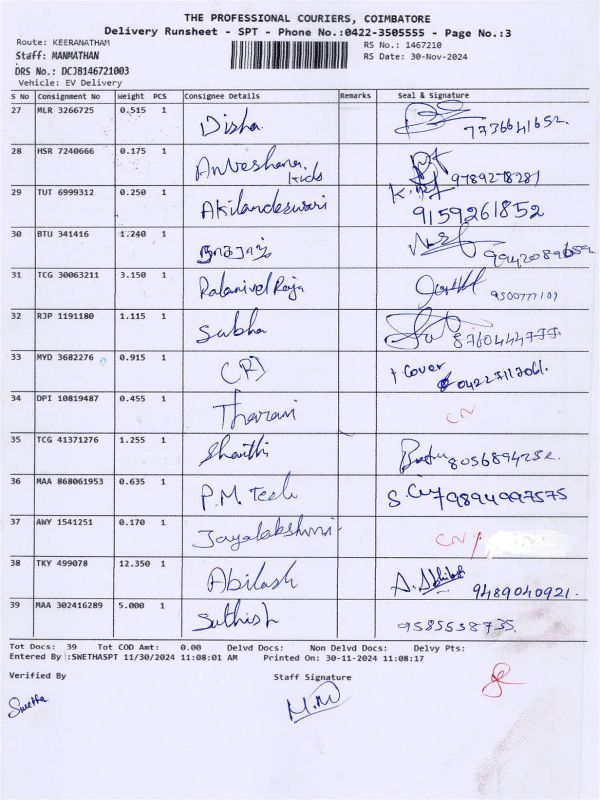 THE PROFESSIONAL COURIERS, COIMBATORE
Delivery Runsheet - SPT - Phone No.:0422-3505555 - Page No.:3
Route: KEERANATHAM RS No.: 1467210
Staff: MANMATHAN RS Date: 30-Nov-2024
DRS No.: DCJB146721003
Vehicle: EV Delivery
S No Consignment No Weight PCS Consignee Details Remarks Seal & Signature
27 MLR 3266725 0.515 1 Disha 7736641652.
28 HSR 7240666 0.175 1 Anveshana kids 9789278281
29 TUT 6999312 0.250 1 Akilandeswari 9159261852
30 BTU 341416 1.240 1 நாகராஜ்
31 TCG 30063211 3.150 1 Palanivel Raja 9500777109
32 RJP 1191180 1.115 1 Subha 8760444777.
33 MYD 3682276 0.915 1 CRI 1 Cover
34 DPI 10819487 0.455 1 Tharani CN
35 TCG 41371276 1.255 1 Shanthi 8056894252.
36 MAA 868061953 0.635 1 P.M. Tech 9894997575
37 AWY 1541251 0.170 1 Jayalakshmi CN
38 TKY 499078 12.350 1 Abilash A. Abhilash 9489040921.
39 MAA 302416289 5.000 1 Sathish 9585558735.
Tot Docs: 39 Tot COD Amt: 0.00 Delvd Docs: Non Delvd Docs: Delvy Pts:
Entered By :SWETHASPT 11/30/2024 11:08:01 AM Printed On: 30-11-2024 11:08:17
Verified By Staff Signature
Swetha M.M